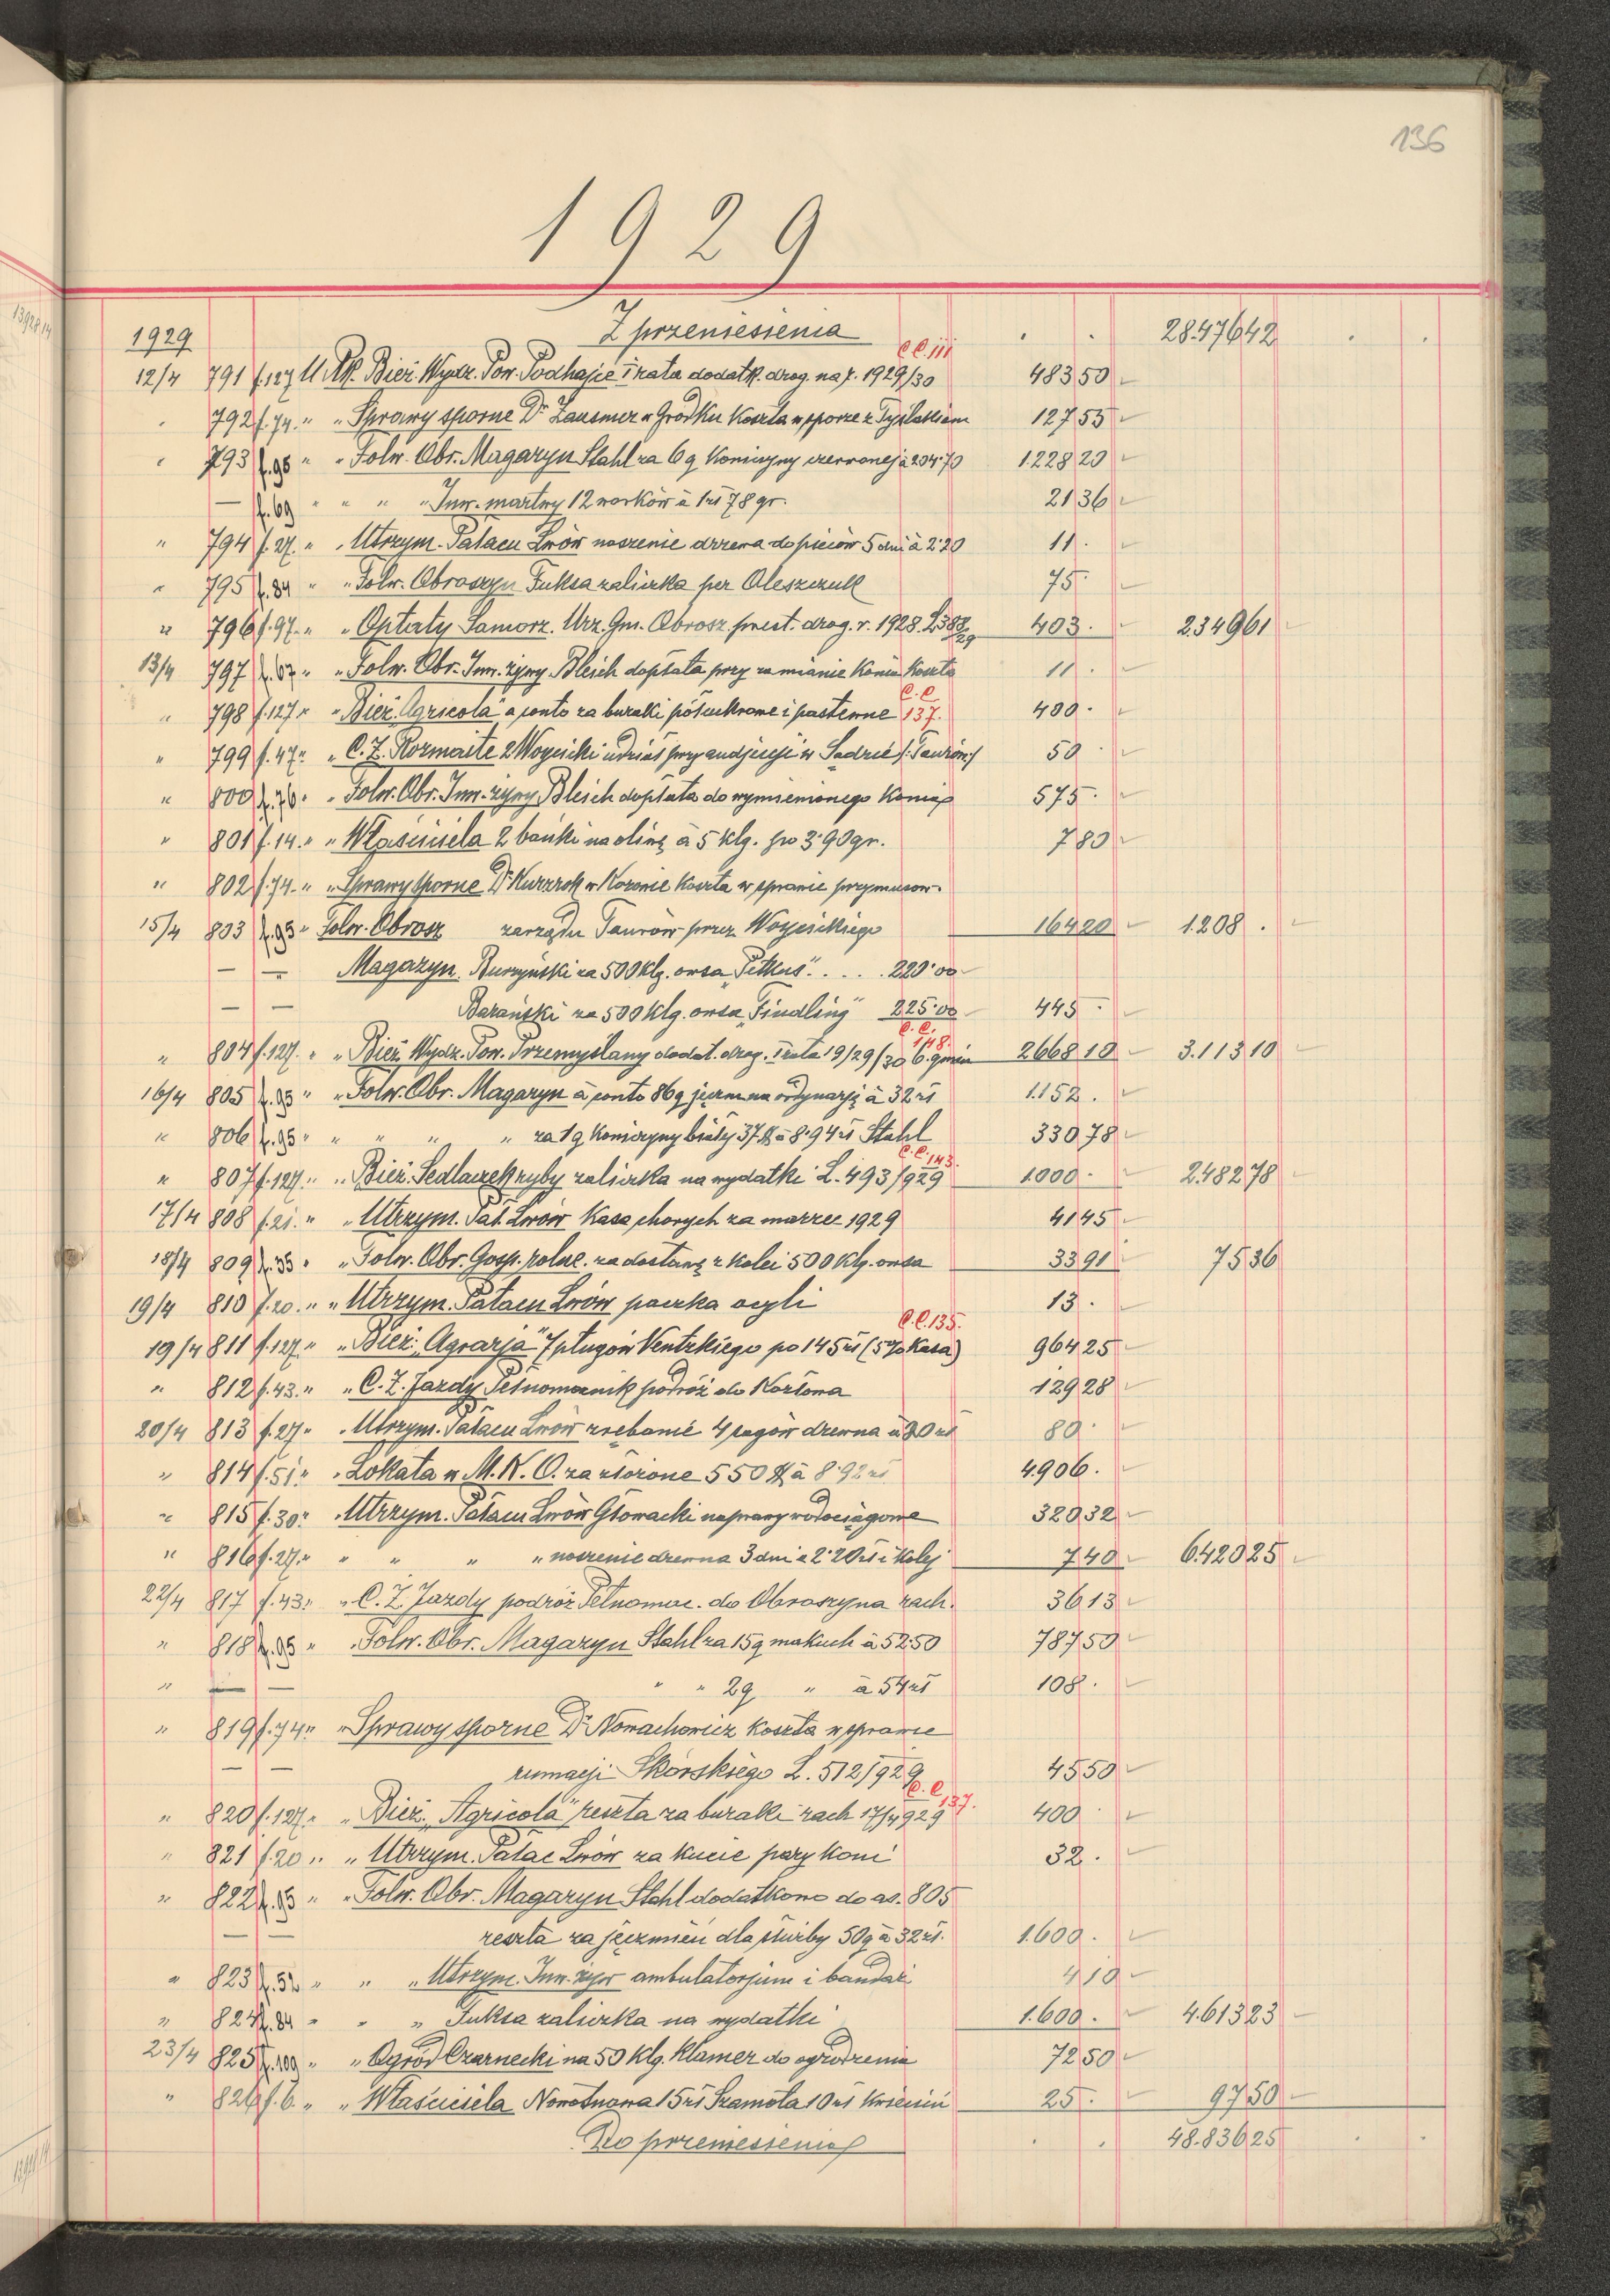 136
1929
1929 Z przeniesienia . . 28.476 42 . .
C.C. 111
12/4 791 f.127 U Rk. Bież. Wydz. Pow. Podhajce I rata dodatk. drog. na r. 1929/30 483 50
" 792 f.74. " " Sprawy sporne Dr Zausmer w Gródku Koszta w sporze z
" 793 f.95 " " Folw. Obr. Magazyn Stahl za 6 q Koniczyny czerwonej à 204.70 1.228 20
— f.69 " " " " Inw. martwy 12 worków à 1 zł 78 gr. 21 36
" 794 f.27. " " Utrzym. Pałacu Lwów noszenie drzewa do pieców 5 dni à 2.20 11 .
" 795 f.84 " " Folw. Obroszyn Fuksa zaliczka per Oleszczuk 75 .
" 796 f.97. " " Opłaty Samorz. Urz. Gm. Obrosz. prest. drog. r. 1928. L388/29 403 . 2.349 61
13/4 797 f.67 " " Folw. Obr. Inw. żywy Bleich dopłata przy zamianie Konia Koszta 11 .
C.C. 137.
" 798 f.127 " " Bież. "Agricola" a conto za buraki półcukrowe i pastewne 400 .
" 799 f.47 " " C. Z. Rozmaite 2 Woycicki udział przy audjencji w Sądzie /: Taurów :/ 50 .
" 800 f.76 " " Folw. Obr. Inw. żywy Bleich dopłata do wymienionego Konia 575 .
" 801 f.14. " " Właściciela 2 bańki na oliwę à 5 klg. po 3.90 gr. 7 80
" 802 f.74. " " Sprawy sporne Dr Kurzrok w Kozowie Koszta w sprawie przymusow.
15/4 803 f.95 " Folw. Obrosz zarządu Taurów przez Woycickiego 164 20 1.208 .
— — Magazyn Burzyński za 500 klg. owsa "Petkus" . . . . 220.00
— — Barański za 500 klg. owsa "Findling" 225.00 445 .
C.C. 148.
" 804 f.127. " " Bież. Wydz. Pow. Przemyślany dodat. drog. I rata 19/29/30 6. gmin 2668 10 3.113 10
16/4 805 f.95 " " Folw. Obr. Magazyn à conto 86 q jęczm. na ordynarję à 32 zł 1.152 .
" 806 f.95 " " " " " za 1 q Koniczyny białej 37 $ à 8.94 zł Stahl 330 78
C.C. 143.
" 807 f.127. " " Bież. Sedlaczek ryby zaliczka na wydatki L. 493/929 1.000 . 2.482 78
17/4 808 f.21. " " Utrzym. Pał. Lwów Kasa chorych za marzec 1929 41 45
18/4 809 f.35 " " Folw. Obr. Gosp. rolne. za dostawę z kolei 500 klg. owsa 33 91 75 36
19/4 810 f.20. " " Utrzym. Pałacu Lwów paczka cegli 13 .
C.C. 135.
19/4 811 f.127. " " Bież. "Agrarja" 7 pługów Ventzkiego po 145 zł (5% Kasa) 964 25
" 812 f.43. " " C. Z. Jazdy Pełnomocnik podróż do Kozłowa 129 28
20/4 813 f.27. " " Utrzym. Pałacu Lwów zrębanie 4 sągów drzewa à 20 zł 80 .
" 814 f.51. " " Lokata w M. K. O. za złożone 550 $ à 8.92 zł 4.906 .
" 815 f.30. " Utrzym. Pałacu Lwów Głowacki naprawy wodociągowe 320 32
" 816 f.27. " " " " " noszenie drzewa 3 dni à 2.20 zł i Kolej 7 40 6.420 25
22/4 817 f.43. " " C. Z. Jazdy podróż Pełnomoc. do Obroszyna rach. 36 13
" 818 f.95 " Folw. Obr. Magazyn Stahl za 15 q makuch à 52.50 787 50
" — — " " 2 q " à 54 zł 108 .
" 819 f.74. " " Sprawy sporne Dr Nowachowicz Koszta w sprawie
— — rumacji Skórskiego L. 512/929 45 50
C.C. 137.
" 820 f.127. " " Bież. "Agricola" reszta za buraki rach 17/4 929 400 .
" 821 f.20. " " Utrzym. Pałac Lwów za kucie pary koni 32 .
" 822 f.95 " " Folw. Obr. Magazyn Stahl dodatkowo do as. 805
— — reszta za jęczmień dla służby 50 q à 32 zł. 1.600 .
" 823 f.52 " " " Utrzym. Inw. żyw ambulatorjum i bandaż 4 10
" 824 f.84 " " " Fuksa zaliczka na wydatki 1.600 . 4.613 23
23/4 825 f.109 " " Ogród Czarnecki na 50 klg. Klamer do ogrodzenia 72 50
" 826 f.6. " " Właściciela Nowotnowa 15 zł Szamota 10 zł 25 . 97 50
Do przeniesienia . . 48.836 25 . .